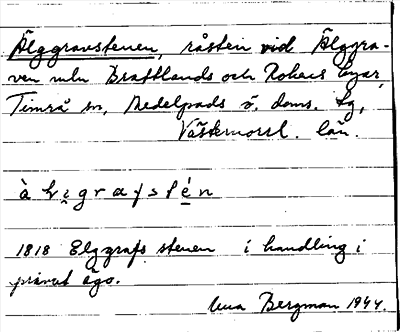 Älggravstenen, råsten vid Älggra-
ven mln Brattlands och Rokens byar,
Timrå sn, Medelpads ö. doms. tg,
Västernorrl. län.
1818 Elggrafs stenen i handling i
privat ägo.
Bergman 1944.